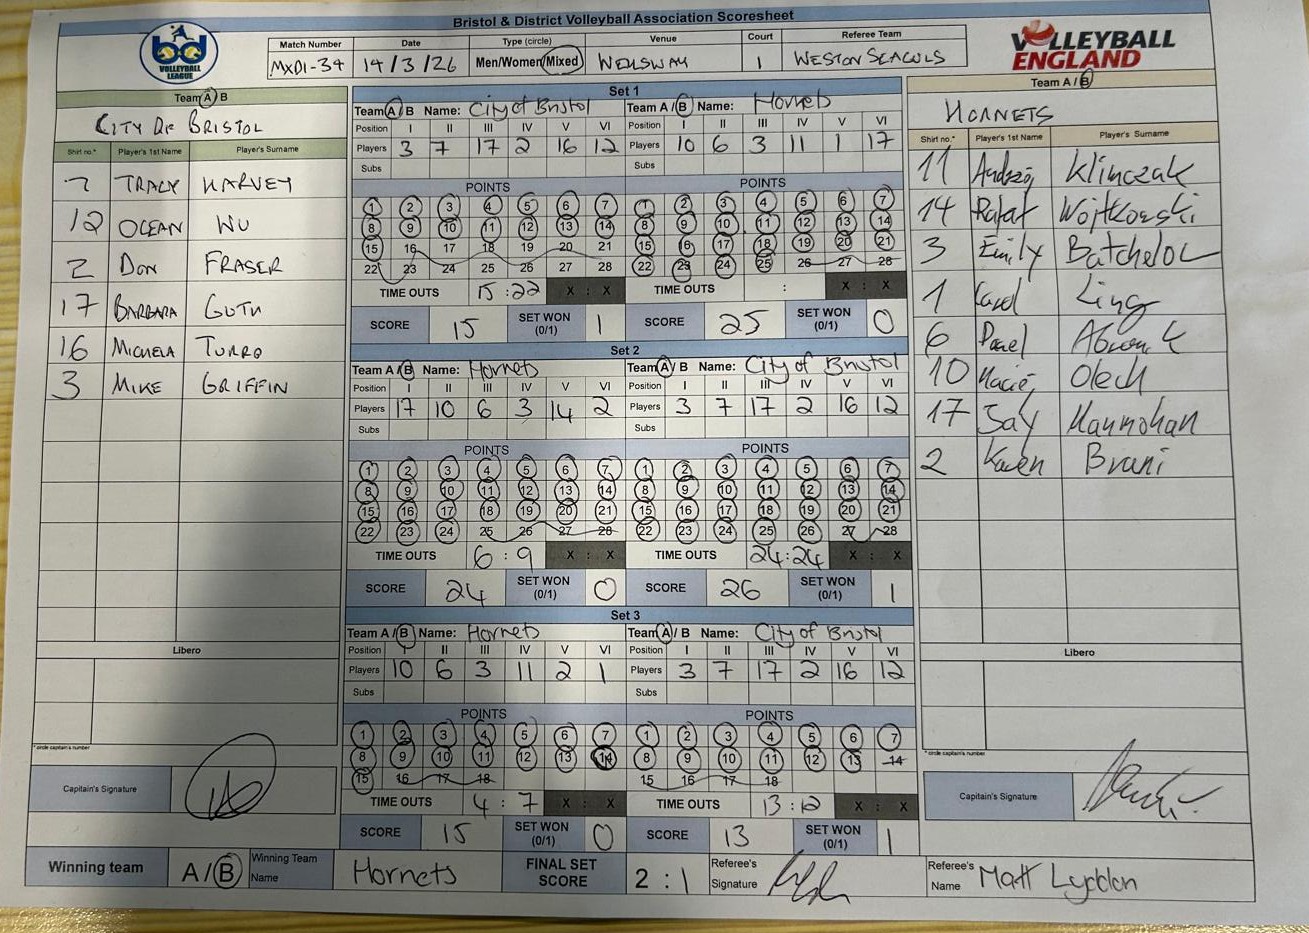 Bristol & District Volleyball Association Scoresheet
VOLLEYBALL LEAGUE
Match Number Date Type (circle) Venue Court Referee Team
MXD1-34 14/3/26 Men/Women/Mixed WELLSWAY 1 WESTON SEAGULLS
VOLLEYBALL ENGLAND
Team A / B
CITY OF BRISTOL
Shirt no.* Player's 1st Name Player's Surname
7 TRACY HARVEY
12 OCEAN WU
2 DON FRASER
17 BARBARA GUTH
16 MICHELA TURRO
3 MIKE GRIFFIN
Libero
* circle captain's number
Captain's Signature
Set 1
Team A / B Name: City of Bristol Team A / B Name: Hornets
Position I II III IV V VI Position I II III IV V VI
Players 3 7 17 2 16 12 Players 10 6 3 11 1 17
Subs Subs
POINTS POINTS
1 2 3 4 5 6 7 1 2 3 4 5 6 7
8 9 10 11 12 13 14 8 9 10 11 12 13 14
15 16 17 18 19 20 21 15 16 17 18 19 20 21
22 23 24 25 26 27 28 22 23 24 25 26 27 28
TIME OUTS 15:22 X : X TIME OUTS : X : X
SCORE 15 SET WON (0/1) 1 SCORE 25 SET WON (0/1) 0
Set 2
Team A / B Name: Hornets Team A / B Name: City of Bristol
Position I II III IV V VI Position I II III IV V VI
Players 17 10 6 3 14 2 Players 3 7 17 2 16 12
Subs Subs
POINTS POINTS
1 2 3 4 5 6 7 1 2 3 4 5 6 7
8 9 10 11 12 13 14 8 9 10 11 12 13 14
15 16 17 18 19 20 21 15 16 17 18 19 20 21
22 23 24 25 26 27 28 22 23 24 25 26 27 28
TIME OUTS 6:9 X : X TIME OUTS 24:24 X : X
SCORE 24 SET WON (0/1) 0 SCORE 26 SET WON (0/1) 1
Set 3
Team A / B Name: Hornets Team A / B Name: City of Bristol
Position I II III IV V VI Position I II III IV V VI
Players 10 6 3 11 2 1 Players 3 7 17 2 16 12
Subs Subs
POINTS POINTS
1 2 3 4 5 6 7 1 2 3 4 5 6 7
8 9 10 11 12 13 14 8 9 10 11 12 13 14
15 16 17 18 15 16 17 18
TIME OUTS 4:7 X : X TIME OUTS 13:12 X : X
SCORE 15 SET WON (0/1) 0 SCORE 13 SET WON (0/1) 1
Team A / B
HORNETS
Shirt no.* Player's 1st Name Player's Surname
11 Klimczak
14 Rafat Wojtkowski
3 Emily Batchelor
1 Carol Ling
6
10 Olech
17 Jay Manmohan
2 Karen Brani
Libero
* circle captain's number
Captain's Signature
Winning team A / B Winning Team Name Hornets FINAL SET SCORE 2 : 1 Referee's Signature Referee's Name Matt Lyddon